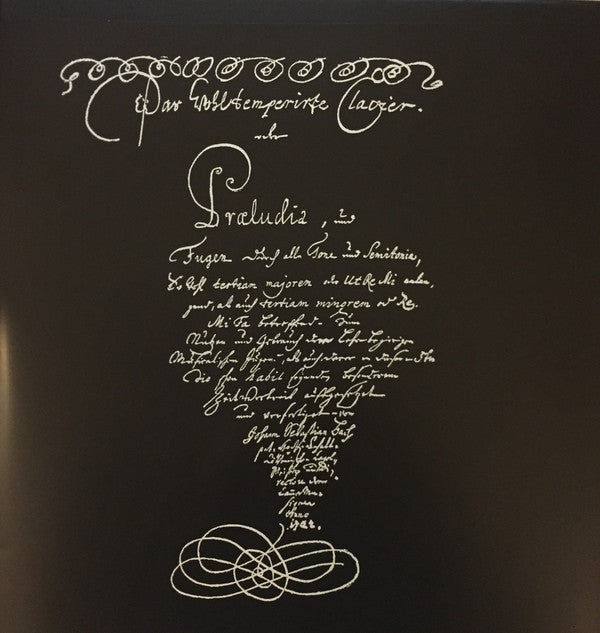 Das Wohltemperirte Clavier.
oder
Præludia, und
Fugen durch alle Tone und Semitonia,
So wohl tertiam majorem oder Ut Re Mi anlan-
gend, als auch tertiam minorem oder Re
Mi Fa betreffend. Zum
Nutzen und Gebrauch der Lehrbegierigen
Musicalischen Jugend, als auch derer in diesem stu-
dio schon habil seyenden besonderem
Zeit Vertreib auffgesetzet
und verfertiget von
Johann Sebastian Bach
p. t. Hochfürstl.
Anno
1722.